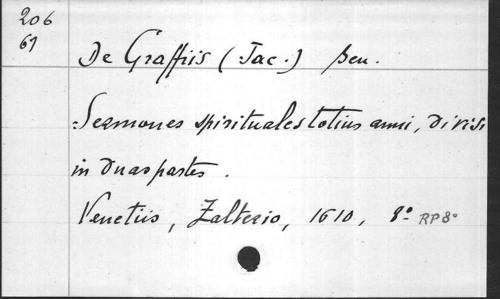 206
69
De Graffiis (Jac.) Ben.
Sermones spirituales totius anni, divisi
in duas partes.
Venetiis, Zalterio, 1610, 8° RP8°